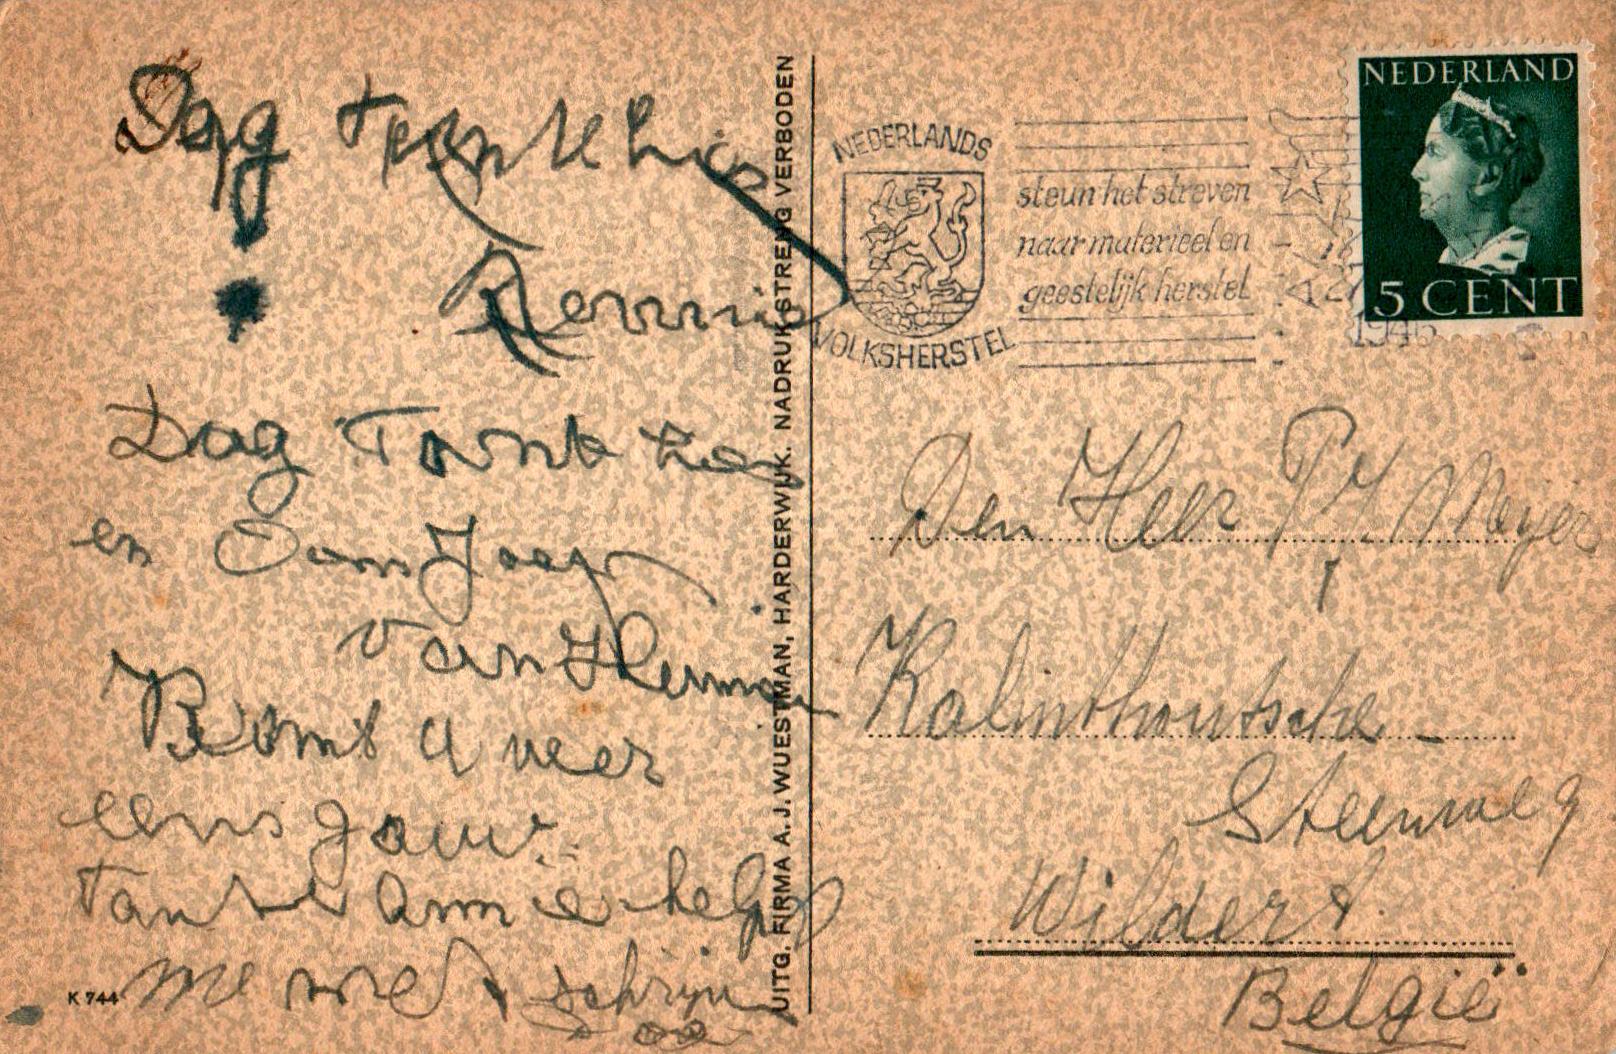 Dag tante
Dag Tante
en Oom Jaap
van Herman
Komt U weer
eens gauw.
Tante Annie helpt
me met schrijven
K 744
UITG. FIRMA A. J. WUESTMAN, HARDERWIJK. NADRUK STRENG VERBODEN
NEDERLANDS
VOLKSHERSTEL
steun het streven
naar materieel en
geestelijk herstel
1946
NEDERLAND
5 CENT
Den Heer P J Meijer
Kalmthoutsche -
Steenweg
Wildert.
België